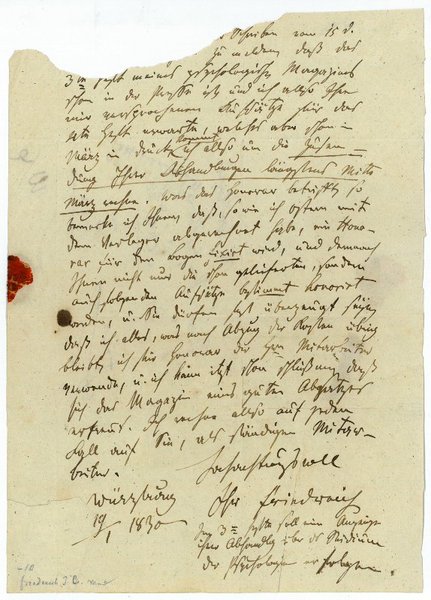 Schreiben vom 15 d.
zu melden daß das
3te Heft meines psychologischen Magazins
schon in der Presse ist und ich also Ihre
mir versprochenen Aufsätze für das
4te Heft erwarte, welches aber schon im
März in Druck kommt, ich also um die Zusen-
dung Ihrer Abhandlungen längstens Mitte
März ersuche. Was das Honorar betrifft so
bemerke ich Ihnen, daß, so wie ich Ostern mit
dem Verleger abgerechnet habe, ein Hono-
rar für den Bogen fixirt wird, und demnach
Ihnen nicht nur die schon gelieferten, sondern
auch folgenden Aufsätze bestimmt honorirt
werden, u. Sie dürfen fest überzeugt seyn,
daß ich alles, was nach Abzug der Kosten übrig
bleibt, ich für Honorar der Mitarbeiter
verwende, u. ich kann itzt schon schließen, daß
sich das Magazin eines guten Absatzes
erfreut. Ich rechne also auf jeden
Fall auf Sie, als ständigen Mitar-
beiter.
Hochachtungsvoll
Würzburg Ihr Friedreich
19/1 1830
Im 3ten Hefte soll eine Anzeige
Ihrer Abhandlg über das Studium
der Psychologie erfolgen.
-10
Friedreich J. B.